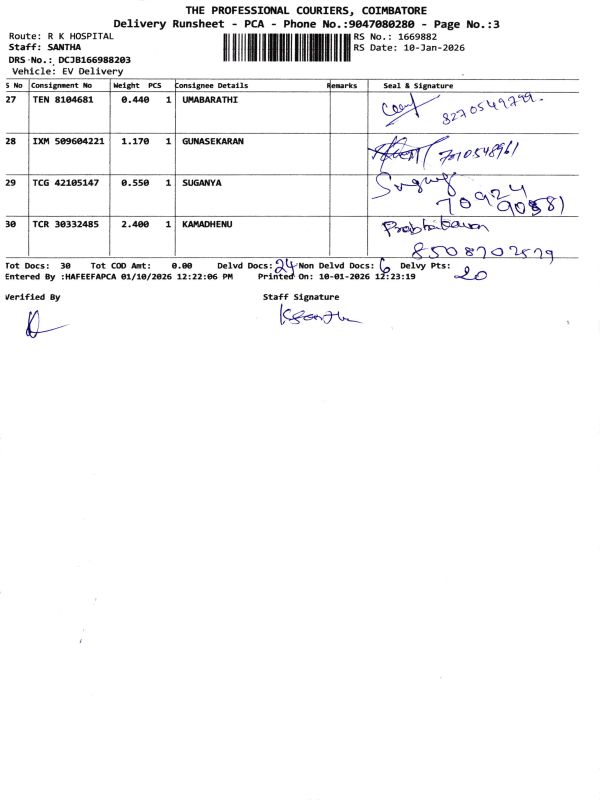 THE PROFESSIONAL COURIERS, COIMBATORE
Delivery Runsheet - PCA - Phone No.:9047080280 - Page No.:3
Route: R K HOSPITAL
RS No.: 1669882
Staff: SANTHA
RS Date: 10-Jan-2026
DRS No.: DCJB166988203
Vehicle: EV Delivery
S No Consignment No Weight PCS Consignee Details Remarks Seal & Signature
27 TEN 8104681 0.440 1 UMABARATHI
8270549799.
28 IXM 509604221 1.170 1 GUNASEKARAN
7010548961
29 TCG 42105147 0.550 1 SUGANYA Suganya
70924
90581
30 TCR 30332485 2.400 1 KAMADHENU Prabhakaran
8508702579
Tot Docs: 30 Tot COD Amt: 0.00 Delvd Docs: 24 Non Delvd Docs: 6 Delvy Pts: 20
Entered By :HAFEEFAPCA 01/10/2026 12:22:06 PM Printed On: 10-01-2026 12:23:19
Verified By Staff Signature
KSantha